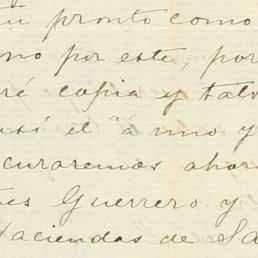 pronto como
no por este, por
ré copia y talv
así el "á uno y
curaremos ahor
es Guerrero y
Haciendas de Sa